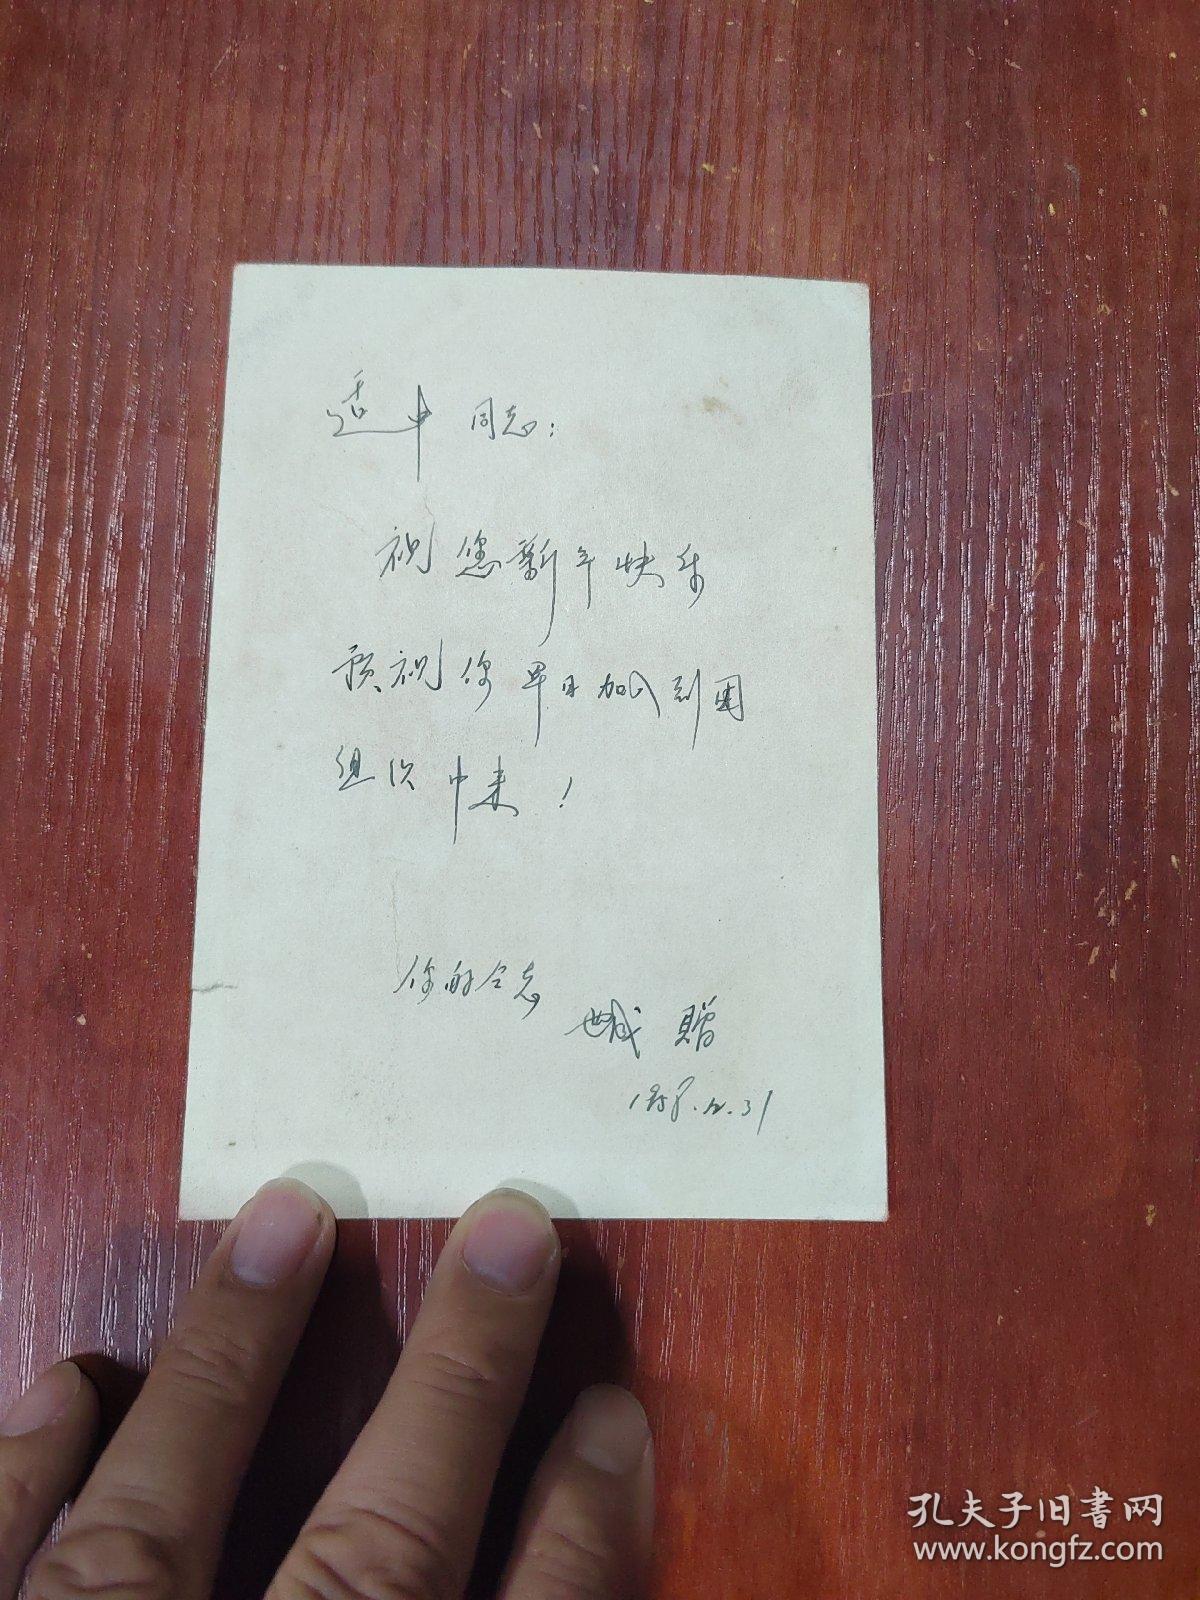 适中 同志:
祝您新年快乐
预祝你早日加入到团
组织中来!
你的同志
赠
1958.12.31
孔夫子旧书网
www.kongfz.com